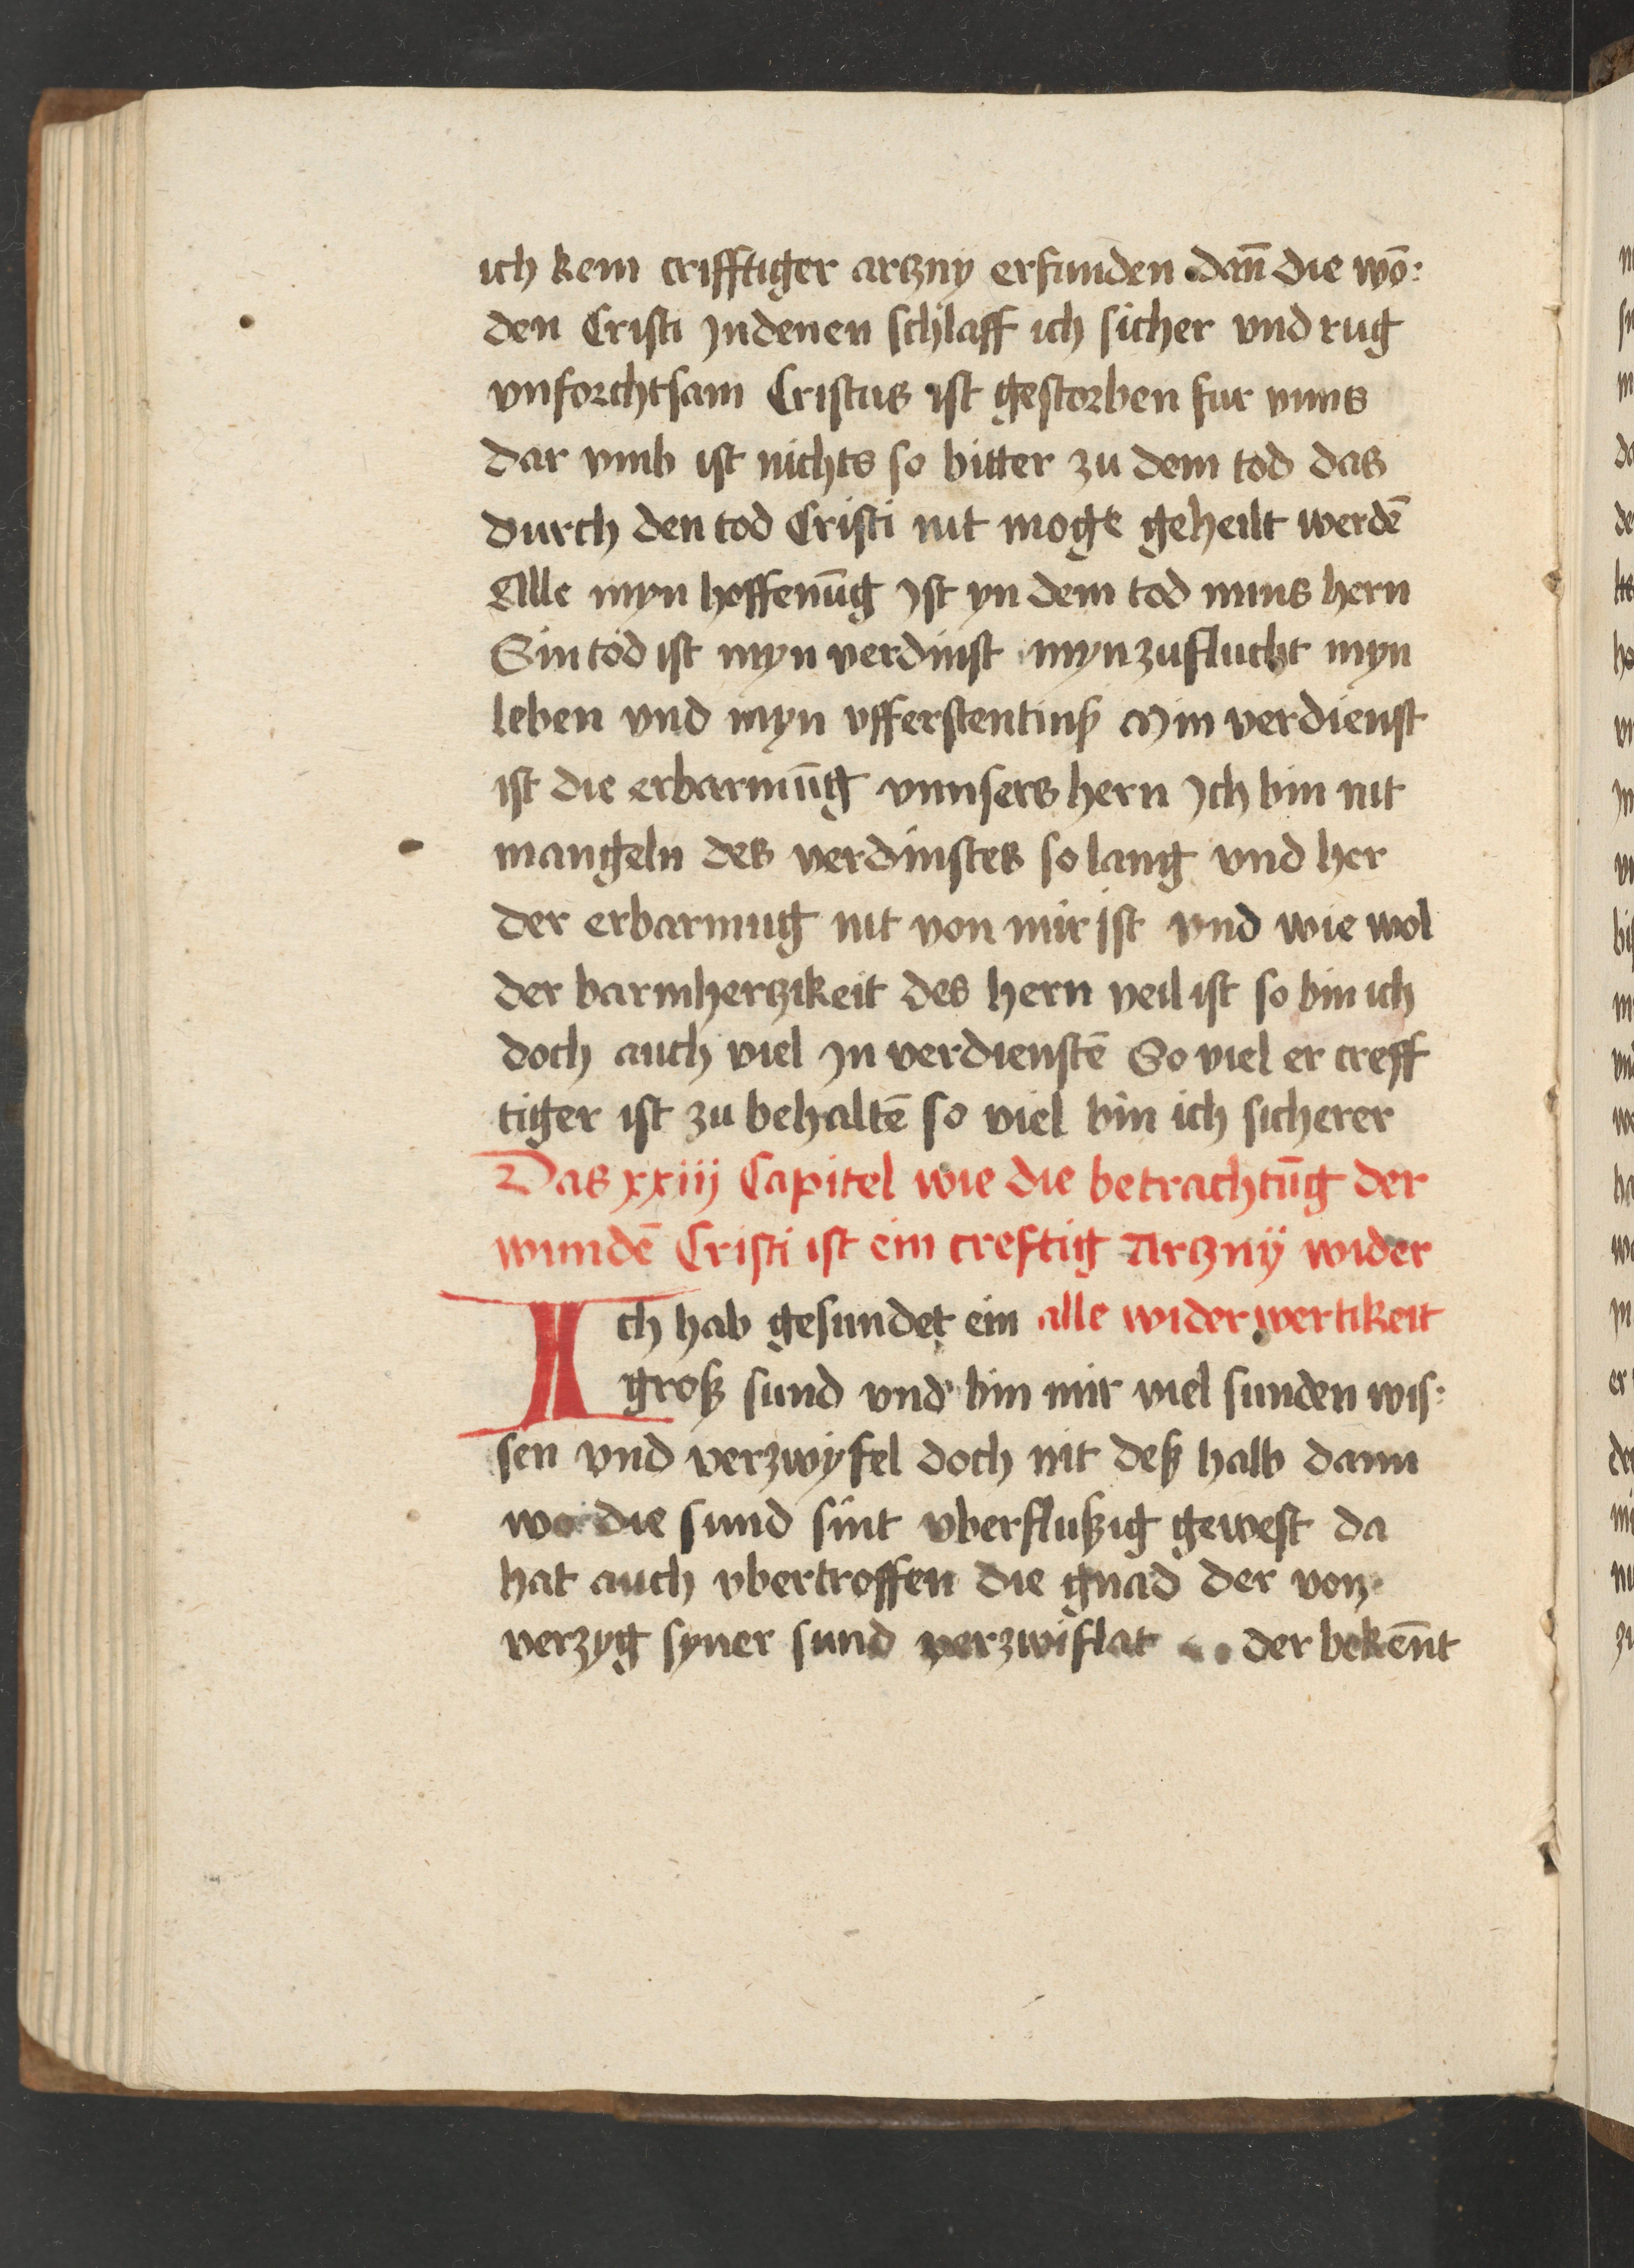 ich kem crifftiger arczny erfunden dañ die wō:
den Cristi Jndenen schlaff ich sicher vnd rug
vnforchtsam Cristus ist gestorben fur vnns
dar vmb ist nichts so bitter zu dem tod das
durch den tod Cristi nit moge geheilt werdē
Alle myn hoffenūg Jst yn dem tod mins hern
Sin tod ist myn verdinst myn zuflucht myn
leben vnd myn vfferstentinß Min verdienst
ist die erbarmūg vnnsers hern Jch bin nit
mangeln des verdinstes so lang vnd her
der erbarmug nit von mir ist vnd wie wol
der barmherczikeit des hern veil ist so bin ich
doch auch viel Jn verdienstē So viel er creff
tiger ist zu behaltē so viel bin ich sicherer
Das xxiij Capitel wie die betrachtūg der
wundē Cristi ist ein creftig Arczny wider
Ich hab gesundet ein alle widerwertikeit
groß sund vnd bin mir viel sunden wis:
sen vnd verzwyfel doch nit deß halb dann
wo die sund sint vberflußig gewest da
hat auch vbertroffen die gnad der von
verzyg syner sund verzwiflat der bekēnt